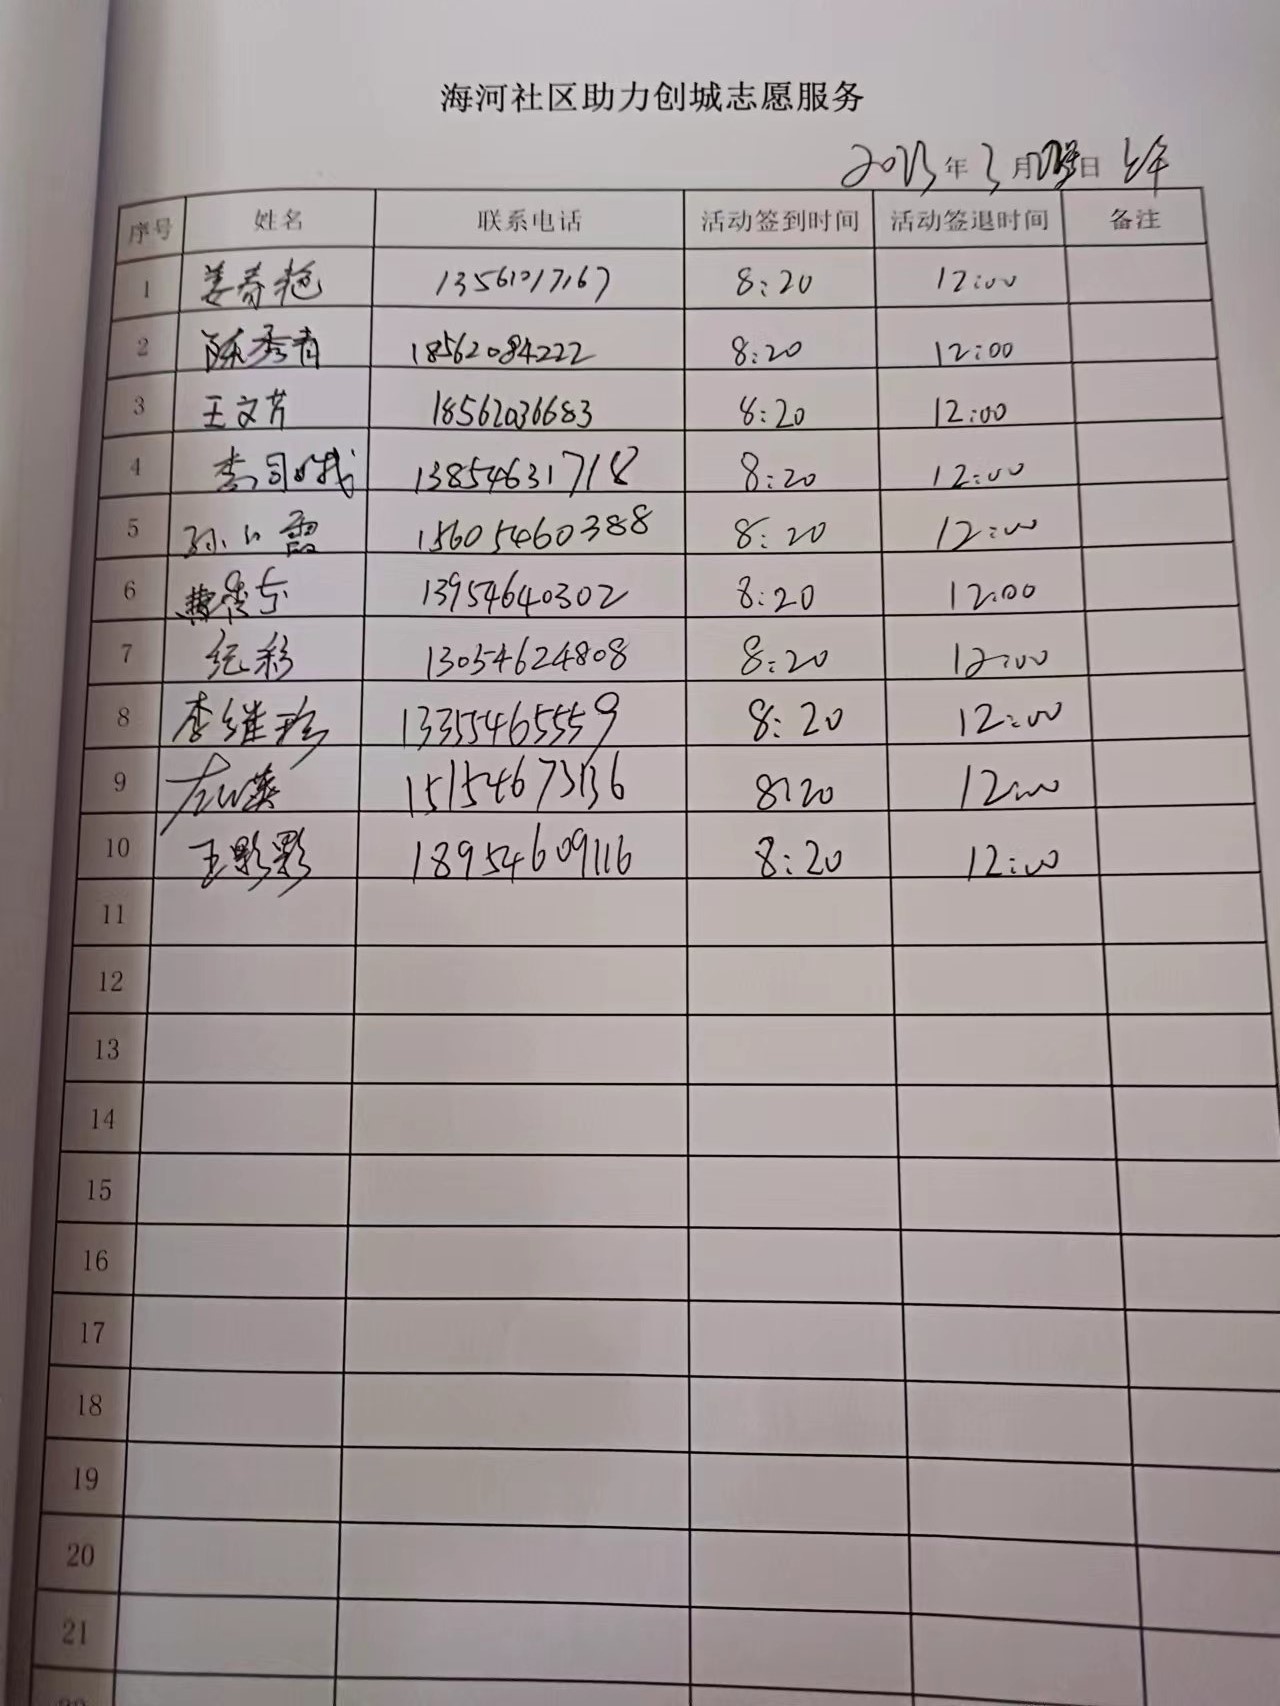 海河社区助力创城志愿服务
2023年3月 日 上午
序号 姓名 联系电话 活动签到时间 活动签退时间 备注
1 姜春艳 13561017167 8:20 12:00
2 陈秀青 18562084222 8:20 12:00
3 王文芹 18562036683 8:20 12:00
4 李 13854631718 8:20 12:00
5 孙 霞 15605460388 8:20 12:00
6 13954640302 8:20 12:00
7 纪彩 13054624808 8:20 12:00
8 李继珍 13355465559 8:20 12:00
9 左 英 15154673136 8:20 12:00
10 王影影 18954609116 8:20 12:00
11
12
13
14
15
16
17
18
19
20
21